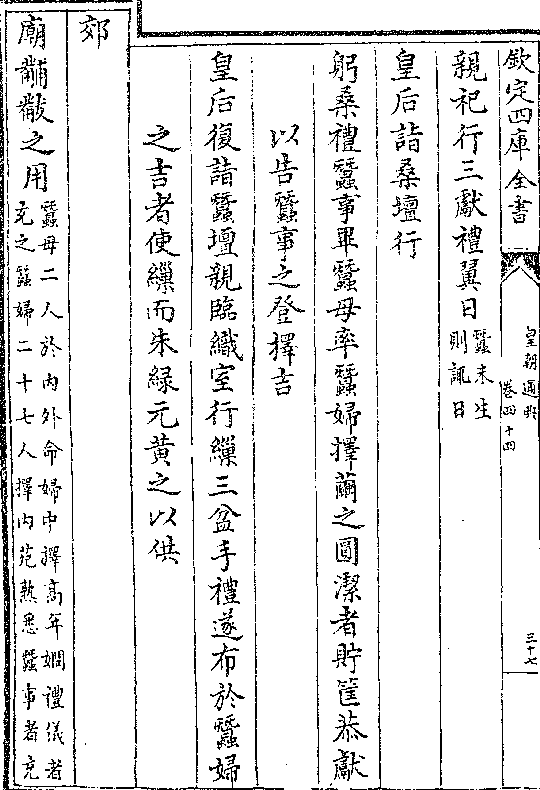 欽定四庫全書
皇朝通典
卷四十四
三十七
親祀行三獻禮翼日蠶未生
則諏日
皇后詣桑壇行
躬桑禮蠶事畢蠶母率蠶婦擇繭之圓潔者貯筐恭獻
以告蠶事之登擇吉
皇后復詣蠶壇親臨織室行繅三盆手禮遂布於蠶婦
之吉者使繅而朱緑元黄之以供
郊
廟黼黻之用蠶母二人於内外命婦中擇髙年嫺禮儀者
充之蠶婦二十七人擇内苑熟悉蠶事者充